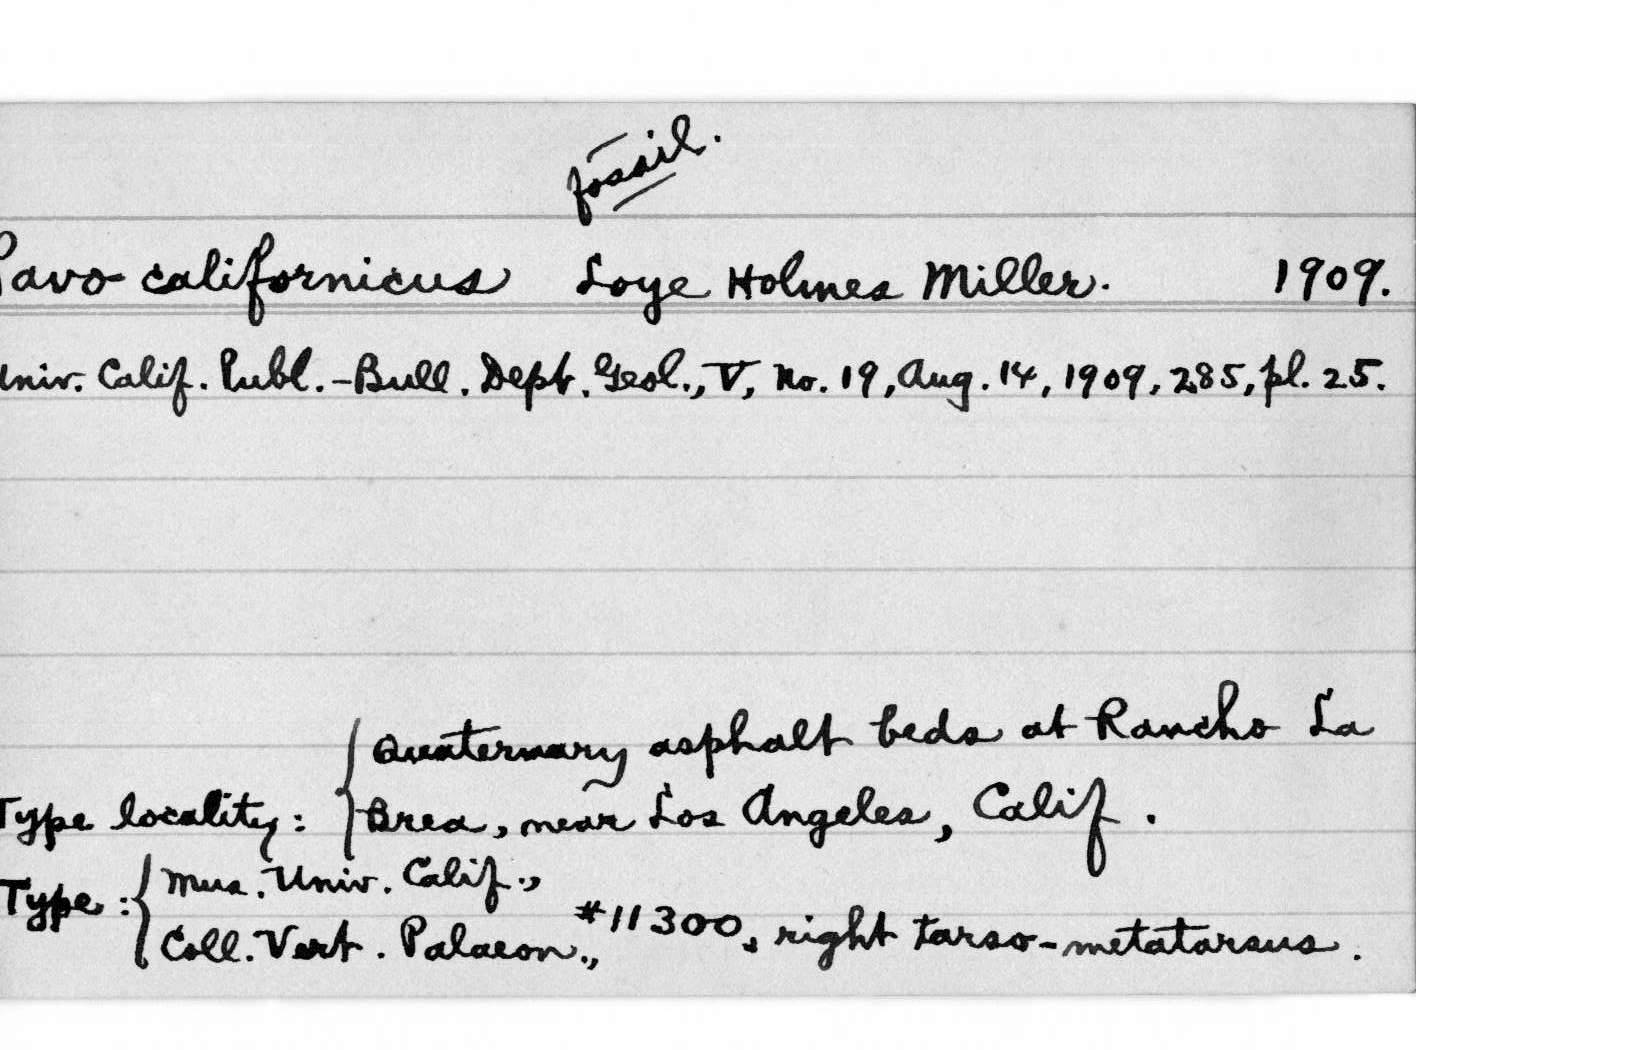 fossil.
Pavo californicus Loye Holmes Miller. 1909.
Univ. Calif. Publ.-Bull. Dept. Geol., V, No. 19, Aug. 14, 1909, 285, pl. 25.
Quaternary asphalt beds at Rancho La
Type locality: Brea, near Los Angeles, Calif.
Mus. Univ. Calif.,
Type: #11300, right tarso-metatarsus.
Coll. Vert. Palaeon.,